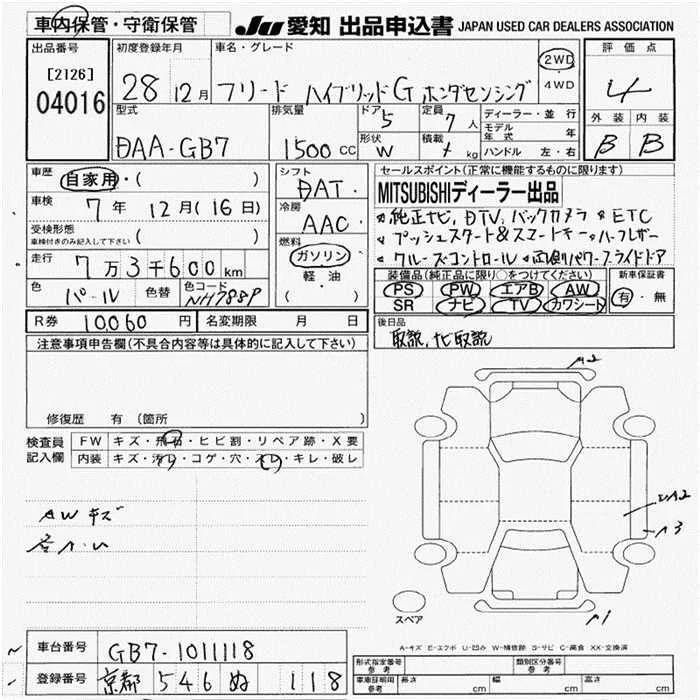 車内保管・守衛保管 JU 愛知 出品申込書 JAPAN USED CAR DEALERS ASSOCIATION
出品番号 初度登録年月 車名・グレード 評価点
[2126] 28 12月 フリード ハイブリッドG ホンダセンシング 2WD 4
04016 4WD
型式 排気量 ドア 5 定員 7人 ディーラー・並行 外装 内装
DAA-GB7 1500cc 形状 W 積載 kg モデル年式 年 B B
ハンドル 左・右
車歴 自家用・( ) シフト DAT セールスポイント(正常に機能するものに限ります)
車検 7年 12月(16日) 冷房 AAC MITSUBISHIディーラー出品
純正ナビ, DTV, バックカメラ ETC
受検形態 ( ) プッシュスタート&スマートキー ハーフレザー
車検付きのみ記入して下さい
燃料 ガソリン クルーズコントロール 両側パワースライドドア
走行 7万3千600km 軽・油
( ) 装備品(純正品に限り○をつけてください) 新車保証書
色 パール 色替 色コード NH788P PS PW エアB AW 有・無
SR ナビ TV カワシート
R券 10,060円 名変期限 月 日 後日品
取説, ナビ取説
注意事項申告欄(不具合内容等は具体的に記入して下さい)
修復歴 有(箇所
検査員 FW キズ・飛石・ヒビ割・リペア跡・X要
記入欄 内装 キズ・汚レ・コゲ・穴・スレ・キレ・破レ
A2
AWキズ
A3
A1
スペア
A-キズ E-エクボ U-凹み W-補修跡 S-サビ C-腐食 XX-交換済
車台番号 GB7-1011118
登録番号 京都 546 ぬ 118
形式指定番号 参考 類別区分番号 参考
車庫証明用 参考 長さ cm 幅 cm 高さ cm